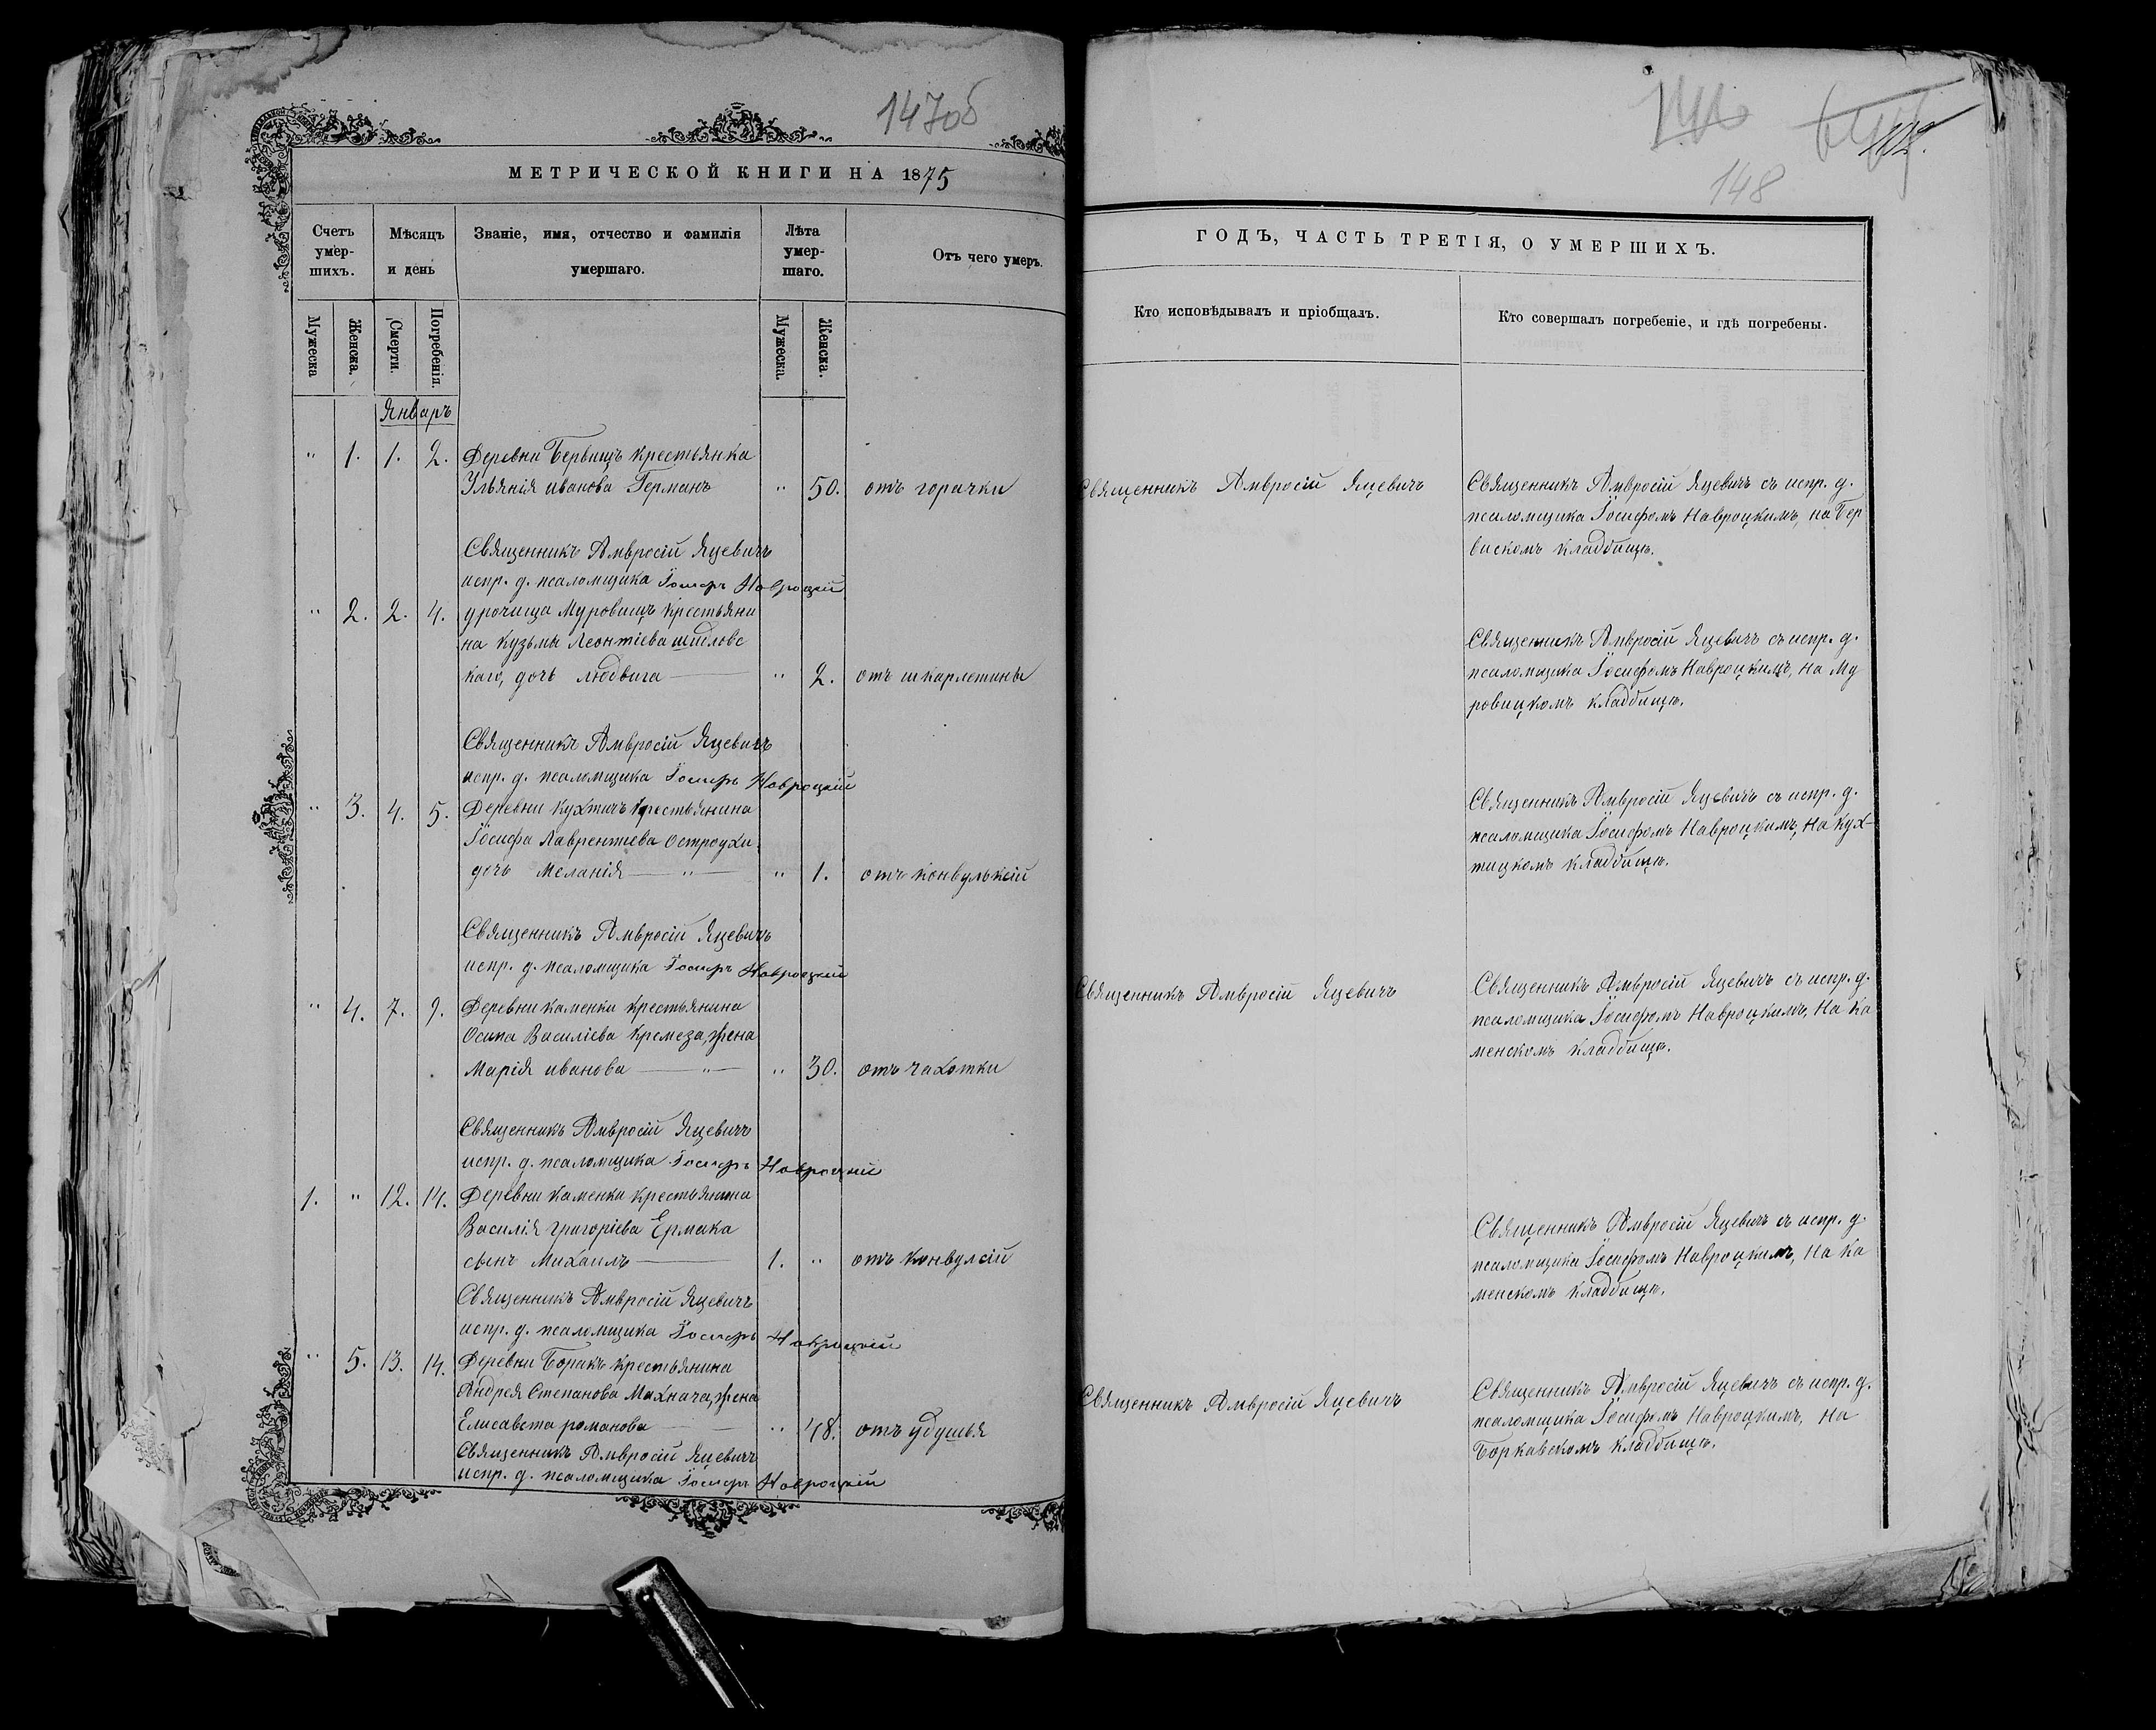 147об
МЕТРИЧЕСКОЙ КНИГИ НА 1875
Счетъ умер-шихъ.
Мѣсяцъ и день
Званіе, имя, отчество и фамилія умершаго.
Лѣта умер-шаго.
Отъ чего умеръ.
Мужеска
Женска.
Смерти.
Погребенія.
Мужеска.
Женска.
Январь
" 1. 1. 2. Деревни Бервищъ крестьянка
Ульянія иванова Германъ " 50. отъ горячки
Священникъ Амвросій Яцевичъ
испр. д. псаломщика Іосифъ Навроцкій
" 2. 2. 4. урочища Муровищъ крестьяни
на Кузьмы Леонтіева
каго, дочь людвига " 2. отъ шкарлетины
Священникъ Амвросій Яцевичъ
испр. д. псаломщика Іосифъ Навроцкій
" 3. 4. 5. Деревни Кухтичъ крестьянина
Іосифа Лаврентіева Остроухи
дочь Меланія " " 1. отъ конвульксій
Священникъ Амвросій Яцевичъ
испр. д. псаломщика Іосифъ Навроцкій
" 4. 7. 9. Деревни Каменки крестьянина
Осипа Василіева Кремеза, жена
Марія иванова " " 30. отъ чахотки
Священникъ Амвросій Яцевичъ
испр. д. псаломщика Іосифъ Навроцкій
1. " 12. 14. Деревни Каменки крестьянина
Василія Григоріева Ермака
сынъ Михаилъ 1. " отъ конвулсій
Священникъ Амвросій Яцевичъ
испр. д. псаломщика Іосифъ Навроцкій
" 5. 13. 14. Деревни Боракъ крестьянина
Андрея Степанова Махнача, жена
Елисавета романова " 48. отъ удушья
Священникъ Амвросій Яцевичъ
испр. д. псаломщика Іосифъ Навроцкій
148
ГОДЪ, ЧАСТЬ ТРЕТІЯ, О УМЕРШИХЪ.
Кто исповѣдывалъ и пріобщалъ.
Кто совершалъ погребеніе, и гдѣ погребены.
Священникъ Амвросій Яцевичъ
Священникъ Амвросій Яцевичъ съ испр. д.
псаломщика Іосифомъ Навроцкимъ, на Бер
вискомъ кладбищѣ.
Священникъ Амвросій Яцевичъ съ испр. д.
псаломщика Іосифомъ Навроцкимъ, на Му
ровицкомъ кладбищѣ.
Священникъ Амвросій Яцевичъ съ испр. д.
псаломщика Іосифомъ Навроцкимъ, на Кух-
тицкомъ кладбищѣ.
Священникъ Амвросій Яцевичъ
Священникъ Амвросій Яцевичъ съ испр. д.
псаломщика Іосифомъ Навроцкимъ, на Ка
менскомъ кладбищѣ.
Священникъ Амвросій Яцевичъ съ испр. д.
псаломщика Іосифомъ Навроцкимъ, на Ка
менскомъ кладбищѣ.
Священникъ Амвросій Яцевичъ
Священникъ Амвросій Яцевичъ съ испр. д.
псаломщика Іосифомъ Навроцкимъ, на
Боркавскомъ кладбищѣ.